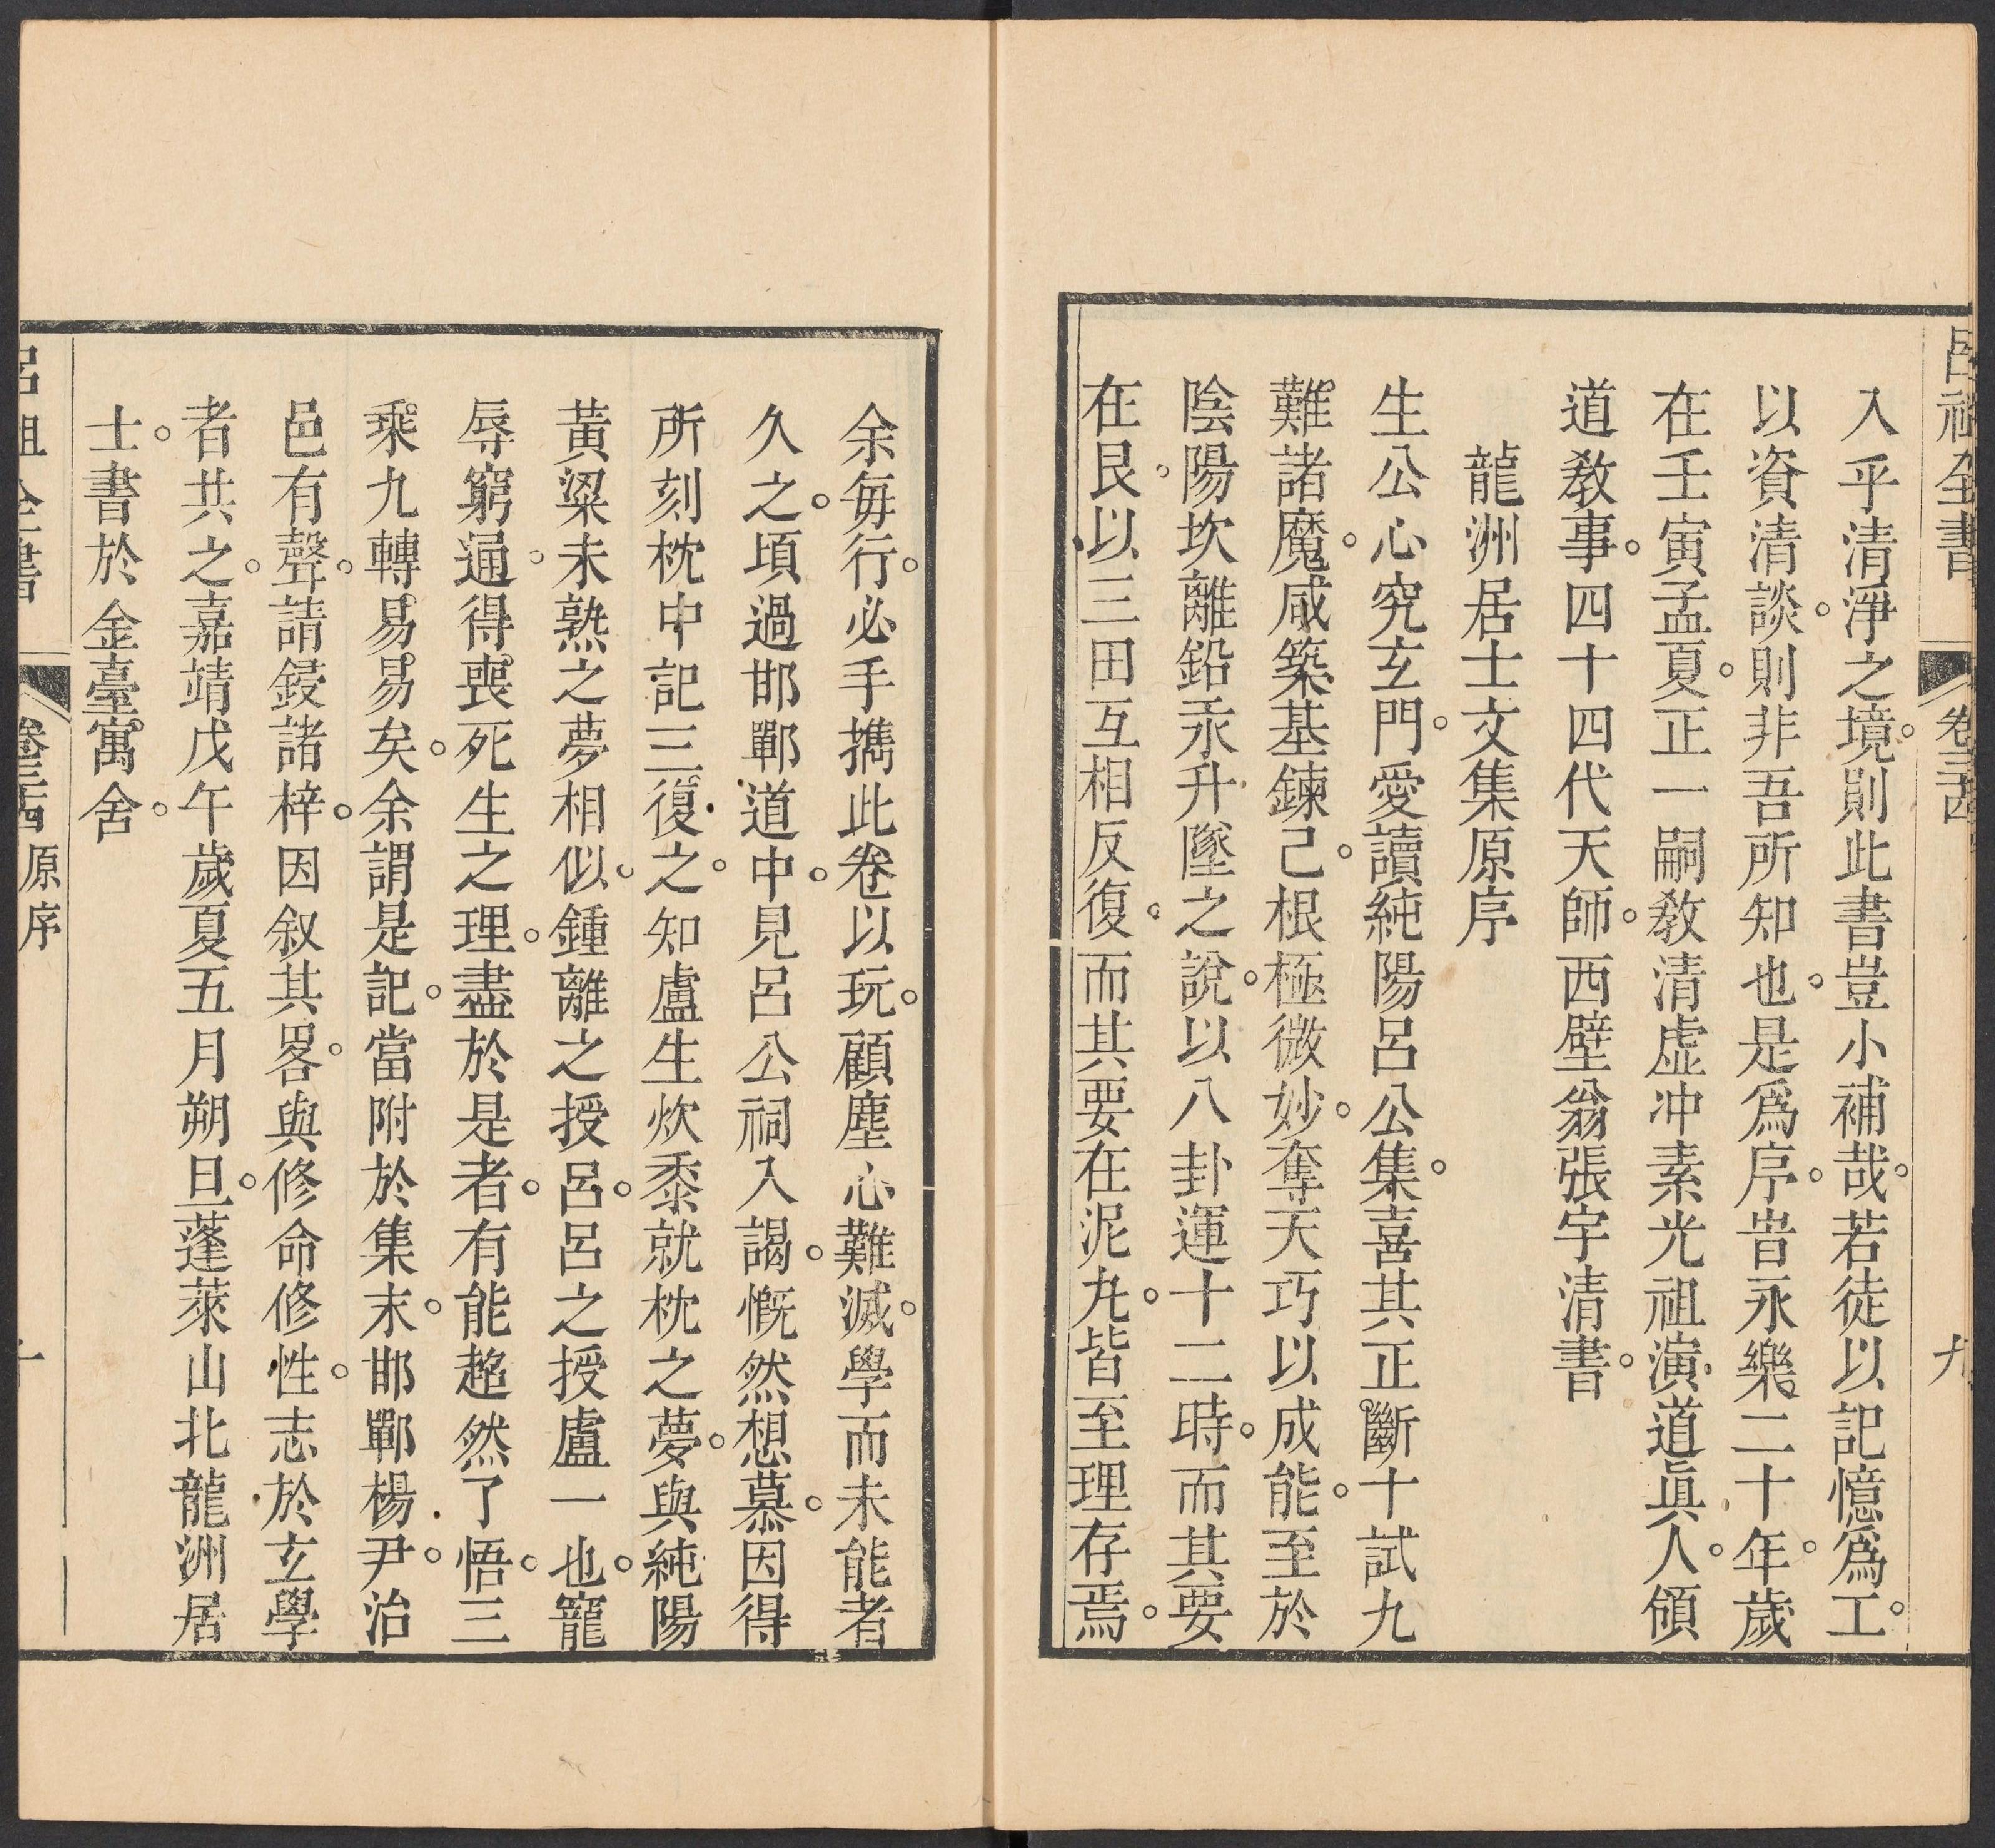 呂祖全書 卷三十四 九
入乎清淨之境。則此書豈小補哉。若徒以記憶爲工。
以資清談。則非吾所知也。是爲序。旹永樂二十年。歲
在壬寅孟夏。正一嗣敎清虛冲素光祖演道眞人。領
道敎事。四十四代天師。西壁翁張宇清書。
龍洲居士文集原序
生公心究玄門。愛讀純陽呂公集。喜其正。斷十試九
難。諸魔。咸築基鍊己。根極微妙。奪天巧以成能。至於
陰陽坎離鉛汞升墜之說。以八卦運十二時。而其要
在艮。以三田互相反復。而其要在泥丸。皆至理存焉。
余每行。必手攜此卷以玩。顧塵心難滅。學而未能者
久之。頃過邯鄲道中。見呂公祠入謁。慨然想慕。因得
所刻枕中記三復之。知盧生炊黍就枕之夢。與純陽
黃粱未熟之夢相似。鍾離之授呂。呂之授盧一也。寵
辱窮通。得喪。死生之理。盡於是者。有能超然了悟。三
乘。九轉。易。易矣。余謂是記。當附於集末。邯鄲楊尹。治
邑有聲。請鋟諸梓。因叙其畧。與修命修性。志於玄學
者共之。嘉靖戊午歲夏五月朔旦。蓬萊山北龍洲居
士。書於金臺。寓舍。
呂祖全書 卷三十四 原序 十